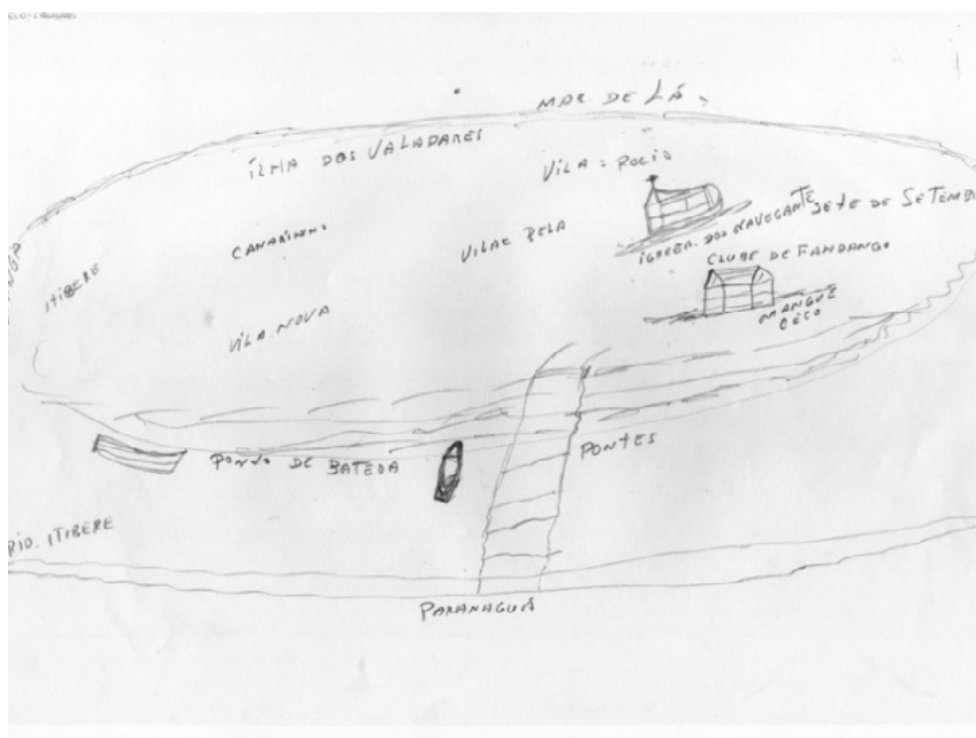 MAR DE LÁ
ILHA DOS VALADARES
VILA: ROCIO
CANARINHO
VILAE BELA
IGREEA. DOS NAVEGANTE
SETE DE SETEMB
CLUBE DE FANDANGO
ITIBERE
MANGUE
CÉCO
VILA. NOVA
PONTES
PONTO DE BATERA
RIO. ITIBERE
PARANAGUÁ